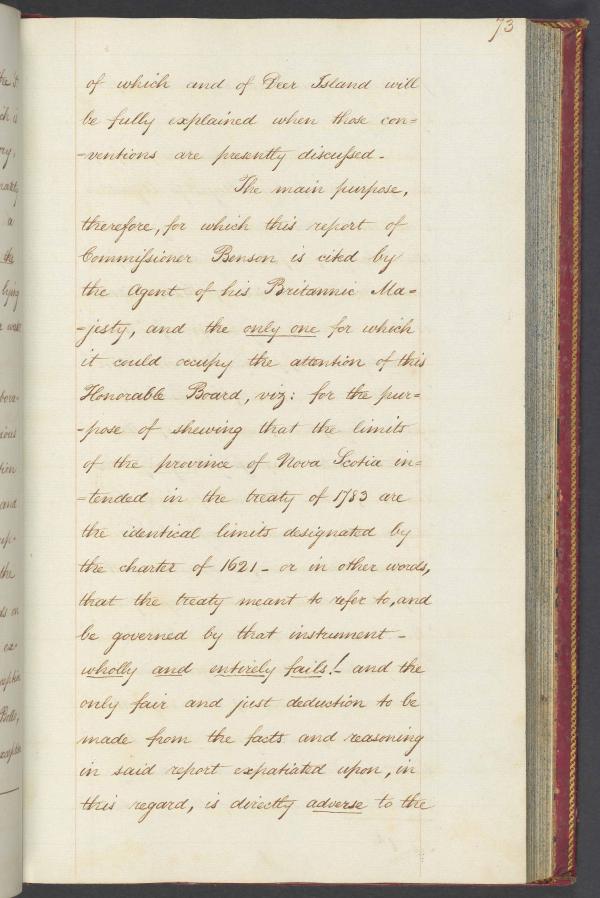 73
of which and of Deer Island will
be fully explained when those con=
=ventions are presently discussed.
The main purpose,
therefore, for which this report of
Commissioner Benson is cited by
the Agent of his Britannic Ma=
=jesty, and the only one for which
it could occupy the attention of this
Honorable Board, viz: for the pur=
=pose of shewing that the limits
of the province of Nova Scotia in=
=tended in the treaty of 1783 are
the identical limits designated by
the charter of 1621 - or in other words,
that the treaty meant to refer to, and
be governed by that instrument -
wholly and entirely fails! - and the
only fair and just deduction to be
made from the facts and reasoning
in said report expatiated upon, in
this regard, is directly adverse to the